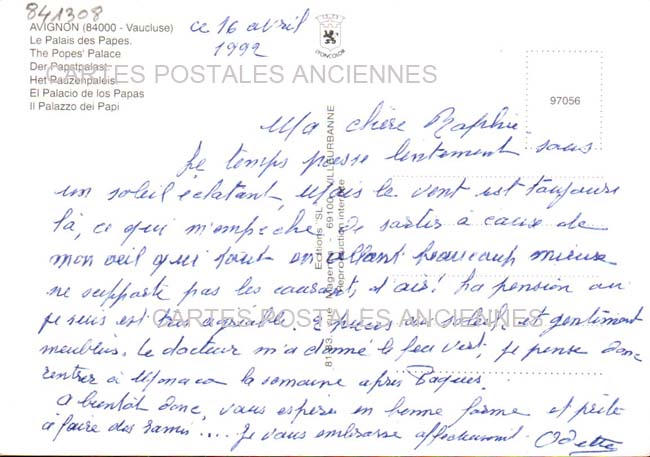 841308
AVIGNON (84000 - Vaucluse)
Le Palais des Papes.
The Popes' Palace
Der Papstpalast
Het Pauzenpaleis
El Palacio de los Papas
Il Palazzo dei Papi
ce 16 avril
1992
LYONCOLOR
97056
CARTES POSTALES ANCIENNES
Ma chère
Le temps passe lentement sous
un soleil éclatant, Mais le vent est toujours
là, ce qui m'empêche de sortir à cause de
mon oeil qui tout en allant beaucoup mieux
ne supporte pas les courants d'air! La pension où
je suis est très agréable 2 pièces au soleil et gentiment
meublées. Le docteur m'a donné le feu vert, je pense donc
rentrer à Monaco la semaine après Pâques.
A bientôt donc, vous espère en bonne forme et prête
à faire des ramis.... Je vous embrasse affectueusement. Odette
CARTES POSTALES ANCIENNES
Editions "SL" 69100 VILLEURBANNE
Reproduction interdite